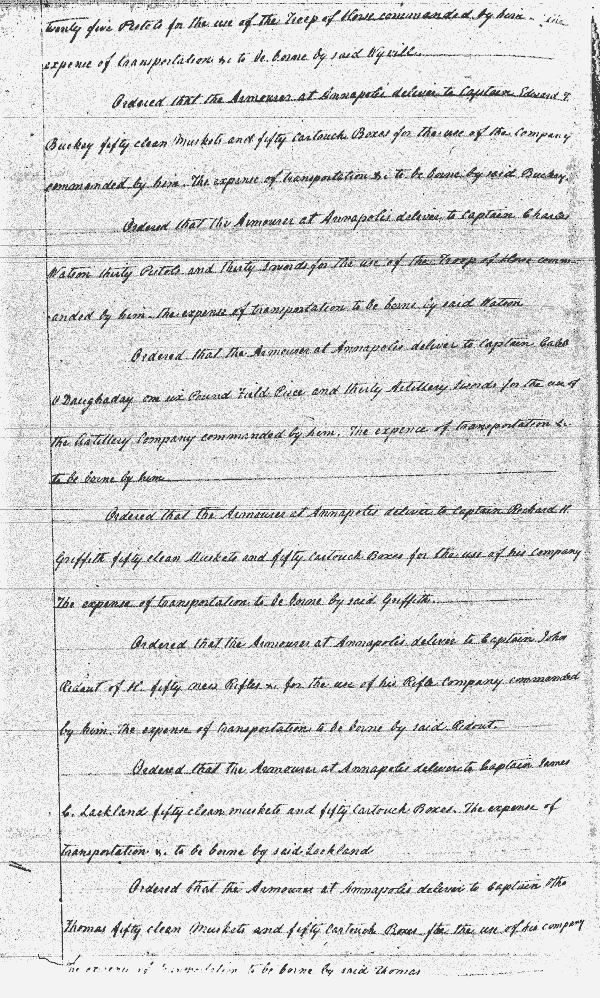 twenty five Pistols for the use of the Troop of Horse commanded by him. The
expense of transportation &c to be borne by said Wyvill.
Ordered that the Armourer at Annapolis deliver to Captain Edward T.
Buckey fifty clean Muskets and fifty Cartouch Boxes for the use of the Company
commanded by him. The expense of transportation &c to be borne by said Buckey.
Ordered that the Armourer at Annapolis deliver to Captain Charles
Watson thirty Pistols and thirty Swords for the use of the Troop of Horse comm-
anded by him. the expense of transportation to be borne by said Watson
Ordered that the Armourer at Annapolis deliver to Captain
O Daughaday one six Pound Field Piece and thirty Artillery Swords for the use of
the Artillery Company commanded by him. The expence of transportation &c.
to be borne by him
Ordered that the Armourer at Annapolis deliver to Captain Richard H.
Griffith fifty clean Muskets and fifty Cartouch Boxes for the use of his Company
The expense of transportation to be borne by said Griffith.
Ordered that the Armourer at Annapolis deliver to Captain John
Ridout of H. fifty new Rifles &c for the use of his Rifle Company commanded
by him. The expense of transportation to be borne by said Ridout.
Ordered that the Armourer at Annapolis deliver to Captain James
C. Lackland fifty clean muskets and fifty Cartouch Boxes. The expense of
transportation &c. to be borne by said Lackland
Ordered that the Armourer at Annapolis deliver to Captain Otho
Thomas fifty clean Muskets and fifty Cartouch Boxes for the use of his company
The expense of transportation to be borne by said Thomas